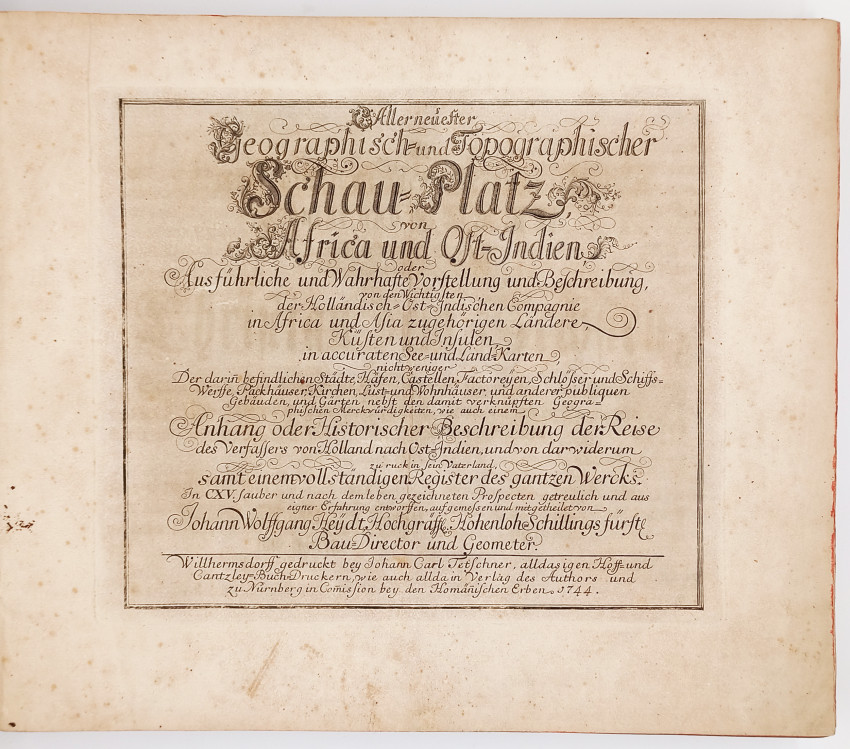 Allerneüester
Geographisch- und Topographischer
Schau-Platz,
von
Africa und Ost-Indien,
oder
Ausführliche und Wahrhafte Vorstellung und Beschreibung,
von den Wichtigsten
der Holländisch-Ost-Indischen Compagnie
in Africa und Asia zugehörigen Ländere,
Küsten und Insulen,
in accuraten See- und Land-Karten,
nicht weniger
Der darin̄ befindlichen Städte, Häfen, Castellen, Factoreÿen, Schlösser und Schiffs-
Werffe, Packhäuser, Kirchen, Lust- und Wohnhäuser, und anderer publiquen
Gebäuden, und Gärten, nebst den damit verknüpften Geogra-
phischen Merckwürdigkeiten, wie auch einem
Anhang oder Historischer Beschreibung der Reise
des Verfassers von Holland nach Ost-Indien, und von dar widerum
zu ruck in sein Vaterland,
samt einem vollständigen Register des gantzen Wercks.
In CXV. sauber und nach dem leben gezeichneten Prospecten getreulich und aus
eigner Erfahrung entworffen, auf gemessen und mitgetheilet von
Johann Wolffgang Heÿdt, Hochgräffl. Hohenloh Schillings fürstl.
Bau-Director und Geometer.
Willhermsdorff gedruckt bey Johann Carl Tetschner, alldasigen Hoff- und
Cantzley-Buch-Druckern, wie auch allda in Verlag des Authors und
zu Nürnberg in Com̄ission bey den Homän̄ischen Erben. 1744.